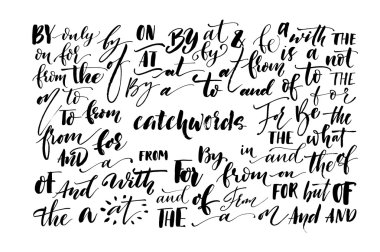 BY only by ON BY at & be a with THE
on for of AT by a is a not
from the at at from of to THE
m to By a to and of to for
To from catchwords For Be the
from for THE what
AND a FROM By in and the of
OF And With For from on FOR but OF
the a at and of From
THE a on And AND